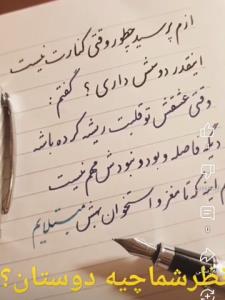 ازم پرسید چطور وقتی کنارت نیست
اینقدر دوسش داری ؟ گفتم :
وقتی عشقش تو قلبت ریشه کرده باشه
دیگه فاصله و بود و نبودش مهم نیست
اینه که تا مغز و استخوان بهش مبتلایم
نظرشماچیه دوستان؟
0